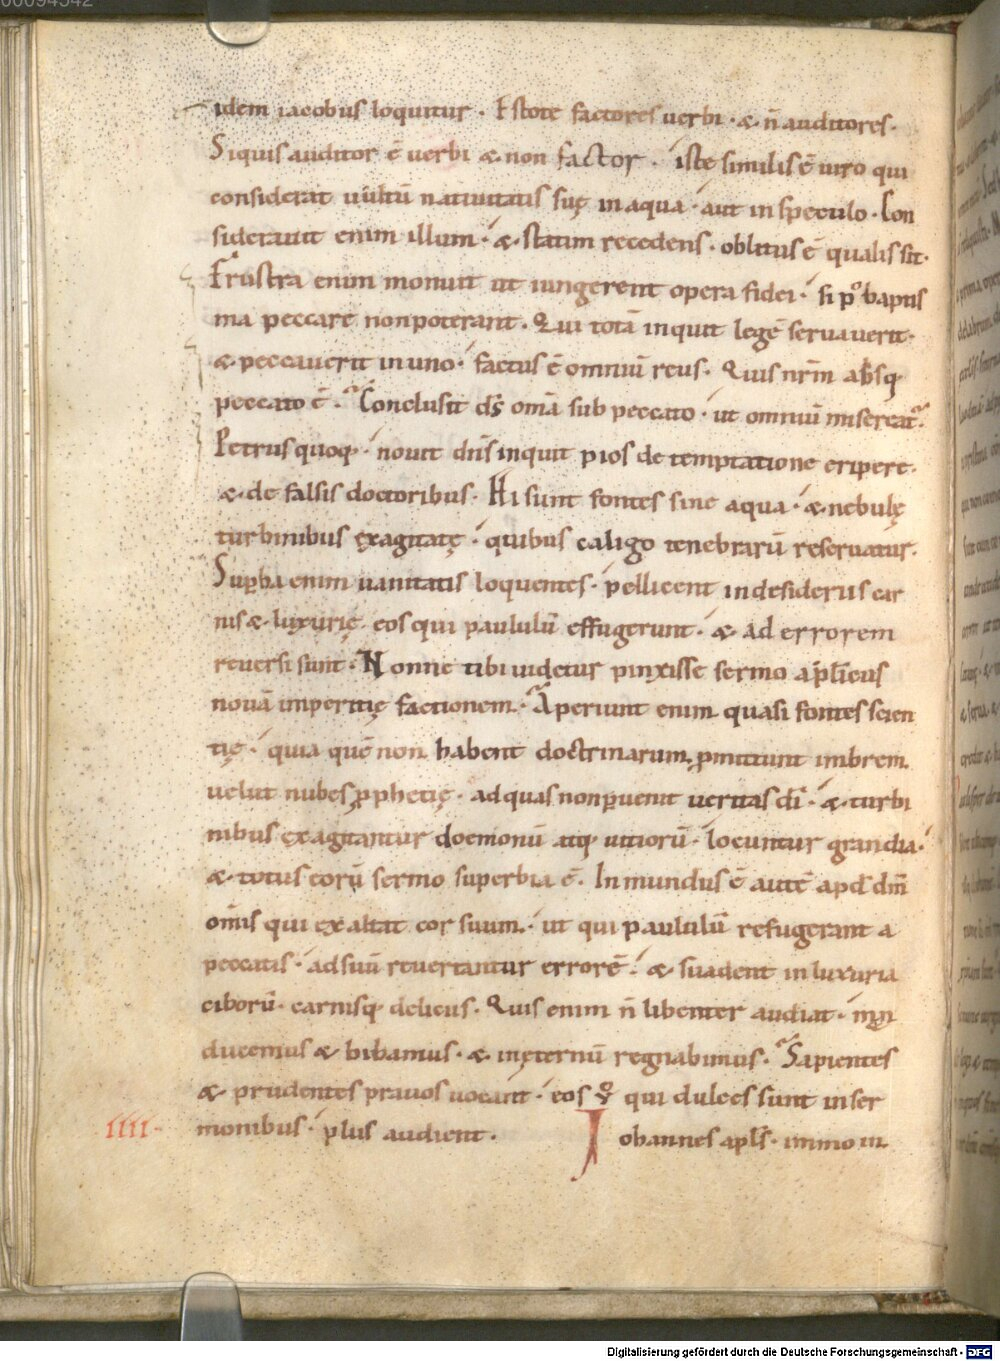 00094542
idem iacobus loquitur · Estote factores uerbi · & · n̄ auditores ·
Siquis auditor ē uerbi & non factor · iste similis ē uiro qui
considerat uultū natiuitatis suę in aqua · aut in speculo · Con
siderauit enim illum · & · statim recedens · oblitus ē qualis sit ·
Frustra enim monuit ut iungerent opera fidei · si p̊ baptis
ma peccare non poterant · Qui totā inquit legē seruauerit ·
& peccauerit in uno · factus ē omniū reus · Quis nr̄m absq;
peccato ē · Conclusit ds̄ om̄a sub peccato · ut omniū misereat᷑ ·
Petrus quoq; · nouit dn̄s inquit pios de temptatione eripere ·
& · de falsis doctoribus · Hi sunt fontes sine aqua · & nebulę
turbinibus exagitatę · quibus caligo tenebrarū reseruatur ·
Suꝑba enim uanitatis loquentes · pellicent in desideriis car
nis & · luxurię eos qui paululū effugerunt · & · ad errorem
reuersi sunt · Nonne tibi uidetur pinxisse sermo apl̄icus
nouā imperitię factionem · Aperiunt enim quasi fontes scien
tię · quia quē non habent doctrinarum ꝓmittunt imbrem
uelut nubes ꝓphetię · ad quas non ꝑuenit ueritas dī · & · turbi
nibus exagitantur doemonū atq; uitiorū · locuntur grandia ·
& · totus eorū sermo superbia ē · Inmundus ē autē apd̄ dm̄
om̄is qui exaltat cor suum · ut qui paululū refugerant a
peccatis · ad suū reuertantur errorē · & · suadent in luxuria
ciborū · carnisq; delicias · Quis enim n̄ libenter audiat ·
ducemus & bibamus · & · inęternū regnabimus · Sapientes
& · prudentes prauos uocant · eos ů qui dulces sunt in ser
IIII · monibus · plus audient · Iohannes apl̄s · immo in
Digitalisierung gefördert durch die Deutsche Forschungsgemeinschaft - DFG